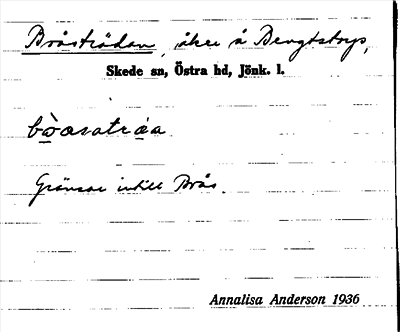 Bråsträdan, åker å Bengtstorp,
Skede sn, Östra hd, Jönk. l.
Gränsar intill Brås.
Annalisa Anderson 1936